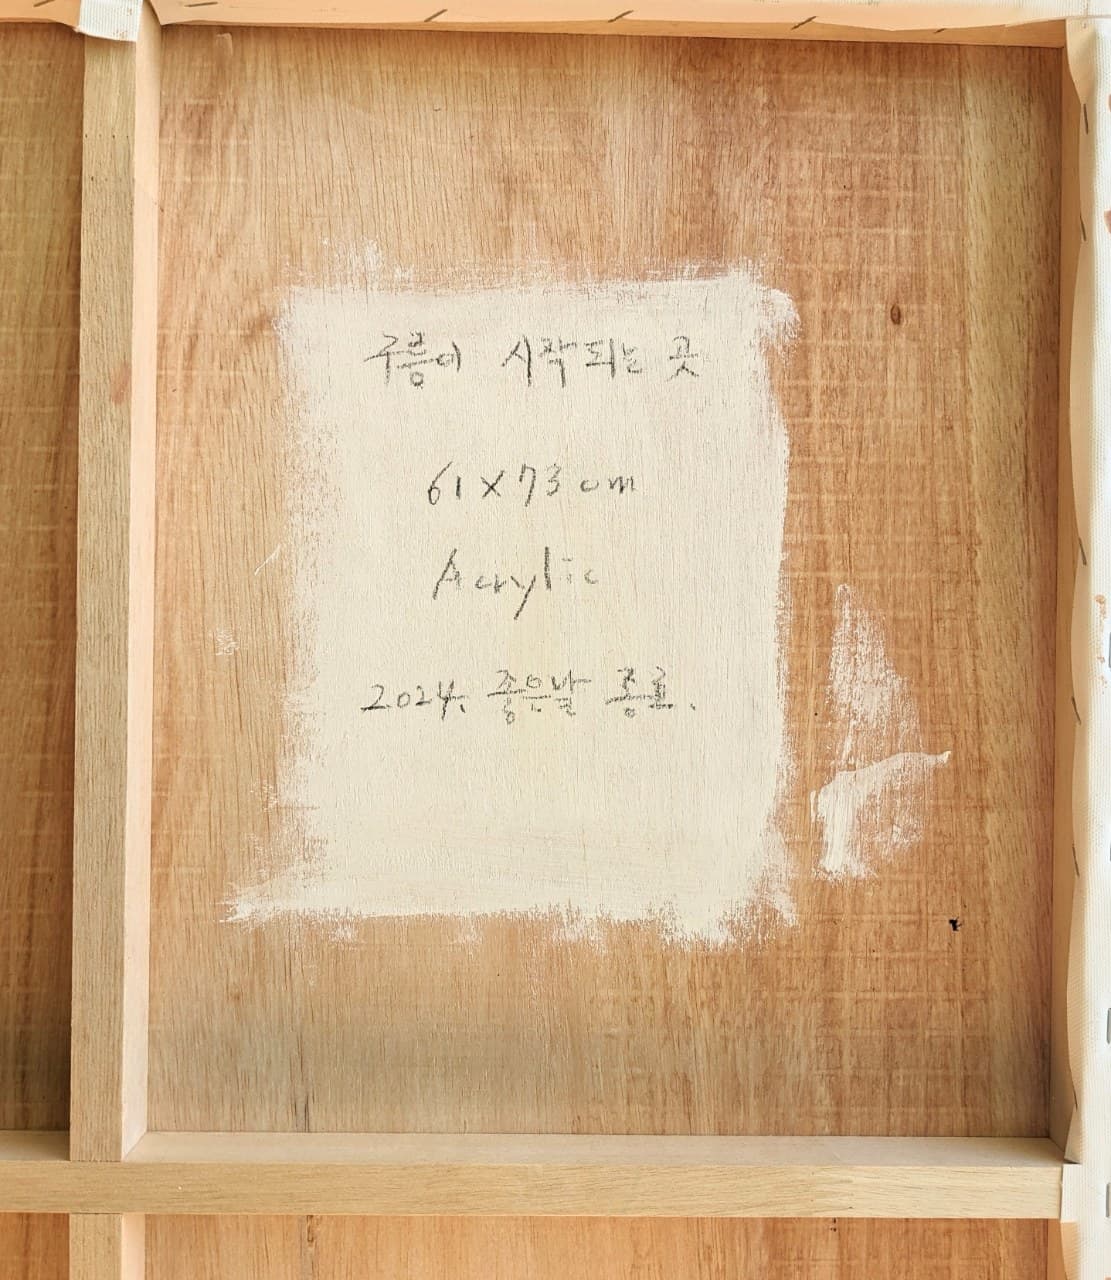 구릉이 시작되는 곳
61x73cm
Acrylic
2024. 좋은날 종료.